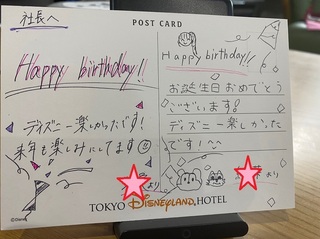 社長へ
POST CARD
Happy birthday!!
ディズニー楽しかったです!
来年も楽しみにしてます
より
Happy birthday!
お誕生日おめでとう
ございます!
ディズニー楽しかった
です!
より
©Disney
TOKYO DISNEYLAND HOTEL